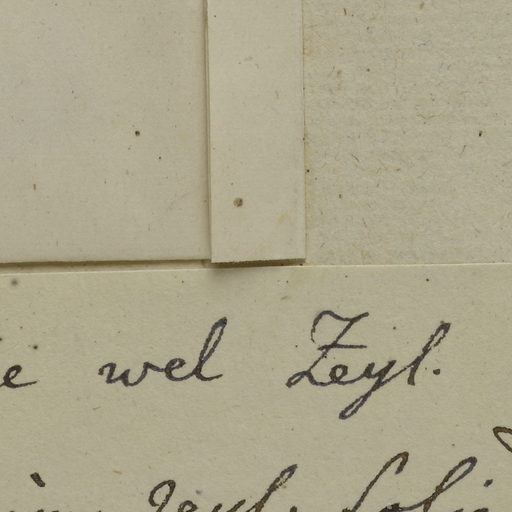 e wel Zeyl.
zeyl. foli